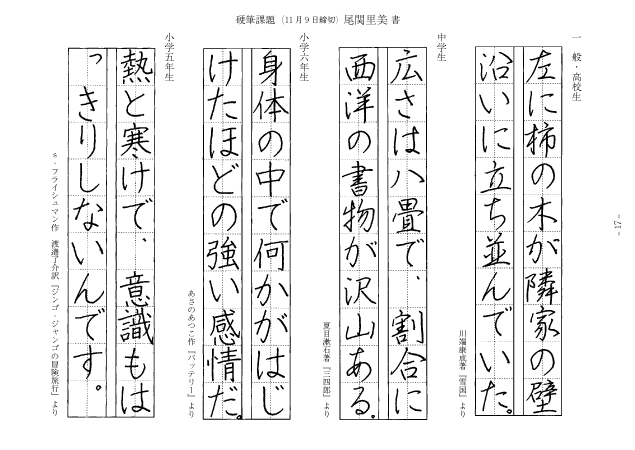 硬筆課題（11月9日締切）尾関里美 書
一般・高校生
左に柿の木が隣家の壁
沿いに立ち並んでいた。
川端康成著『雪国』より
中学生
広さは八畳で、割合に
西洋の書物が沢山ある。
夏目漱石著『三四郎』より
小学六年生
身体の中で何かがはじ
けたほどの強い感情だ。
あさのあつこ作『バッテリー』より
小学五年生
熱と寒けで、意識もは
っきりしないんです。
s・フライシュマン作 渡邉了介訳『ジンゴ・ジャンゴの冒険旅行』より
- 17 -